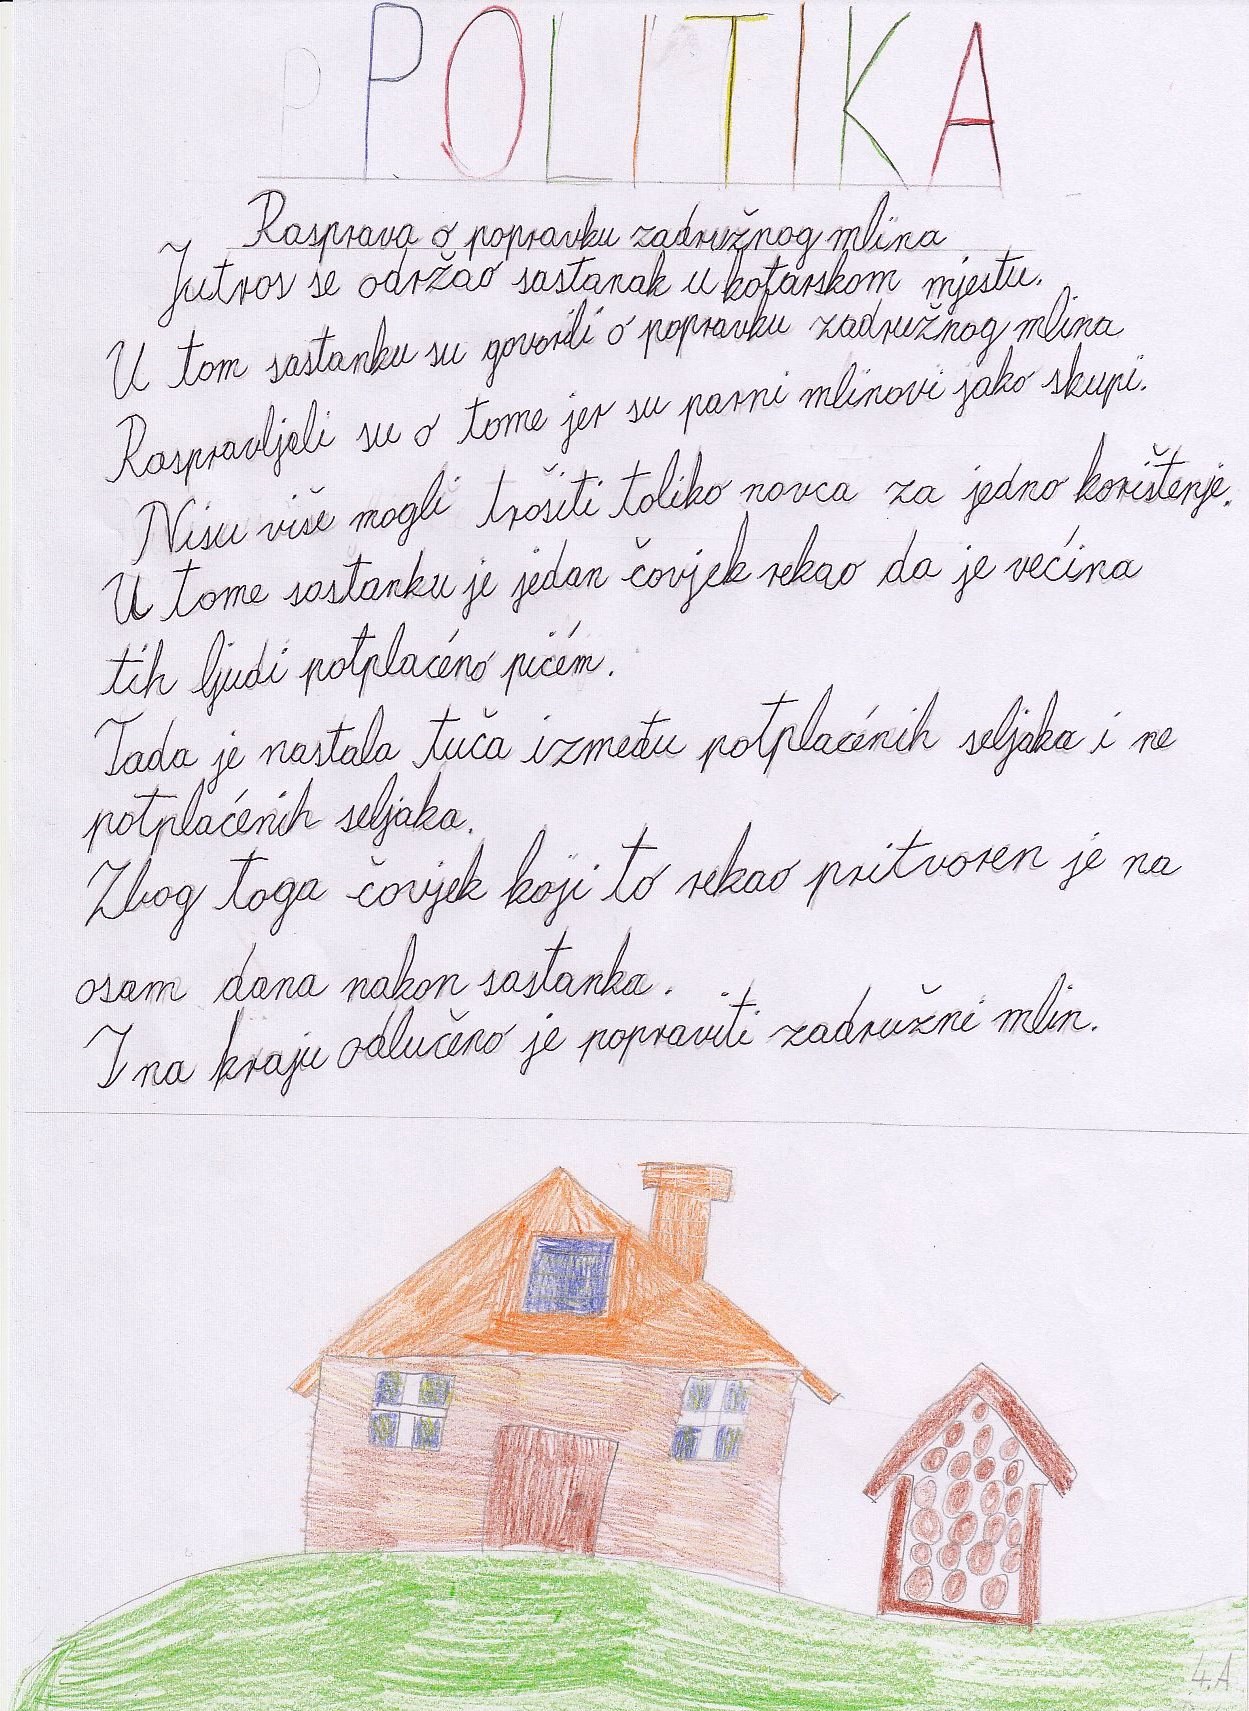 POLITIKA
Rasprava o popravku zadružnog mlina
Jutros se održao sastanak u kotarskom mjestu.
U tom sastanku su govorili o popravku zadružnog mlina
Raspravljali su o tome jer su parni mlinovi jako skupi.
Nisu više mogli trošiti toliko novca za jedno korištenje.
U tome sastanku je jedan čovjek rekao da je većina
tih ljudi potplaćeno pićem.
Tada je nastala tuča između potplaćenih seljaka i ne
potplaćenih seljaka.
Zbog toga čovjek koji to rekao pritvoren je na
osam dana nakon sastanka.
I na kraju odlučeno je popraviti zadružni mlin.
4.A